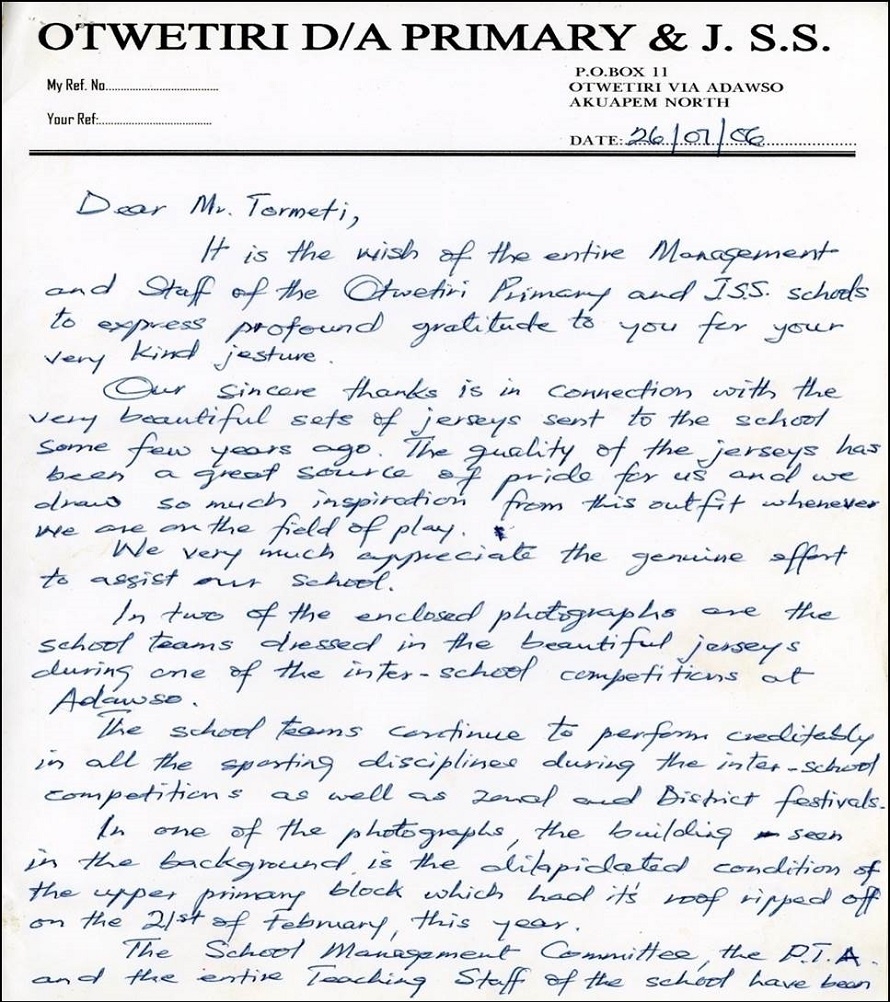 OTWETIRI D/A PRIMARY & J. S.S.
My Ref. No......................................
P.O.BOX 11
OTWETIRI VIA ADAWSO
AKUAPEM NORTH
Your Ref:.....................................
DATE: 26/07/06
Dear Mr. Tormeti,
It is the wish of the entire Management
and Staff of the Otwetiri Primary and J.S.S. schools
to express profound gratitude to you for your
very kind jesture.
Our sincere thanks is in connection with the
very beautiful sets of jerseys sent to the school
some few years ago. The quality of the jerseys has
been a great source of pride for us and we
draw so much inspiration from this outfit whenever
we are on the field of play.
We very much appreciate the genuine effort
to assist our school.
In two of the enclosed photographs are the
school teams dressed in the beautiful jerseys
during one of the inter-school competitions at
Adawso.
The school teams continue to perform creditably
in all the sporting disciplines during the inter-school
competitions as well as zonal and District festivals.
In one of the photographs, the building seen
in the background is the dilapidated condition of
the upper primary block which had it's roof ripped off
on the 21st of February, this year.
The School Management Committee, the P.T.A.
and the entire Teaching Staff of the school have been